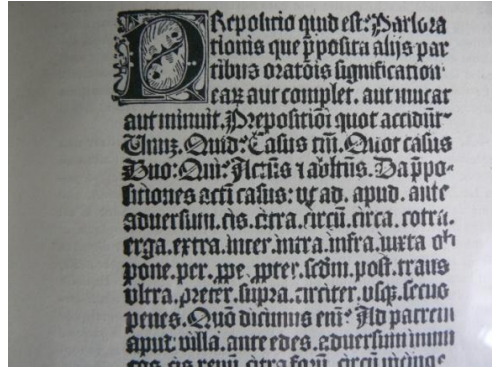 PRepositio quid est? Pars ora
tionis que p̄posita alijs par
tibus oratōis signification
eaꝝ aut complet. aut mutat
aut minuit. Prepositiōi quot accidūt?
Unuꝫ. Quid? Casus tm̄. Quot casus
Duo. Qui? Actūs ⁊ abltūs. Da p̄po-
sitiones acti casus: ut ad. apud. ante
aduersum. cis. citra. circū. circa. cōtra.
erga. extra. inter. intra. infra. iuxta ob
pone. per. ꝓpe. ꝓpter. scd̄m. post. trans
vltra. preter. supra. circiter. vsqꝫ. secus
penes. Quō dicimus eni? Ad patrem
aput villa. ante edes. aduersum inimi
cos. cis renū. citra forū. circū